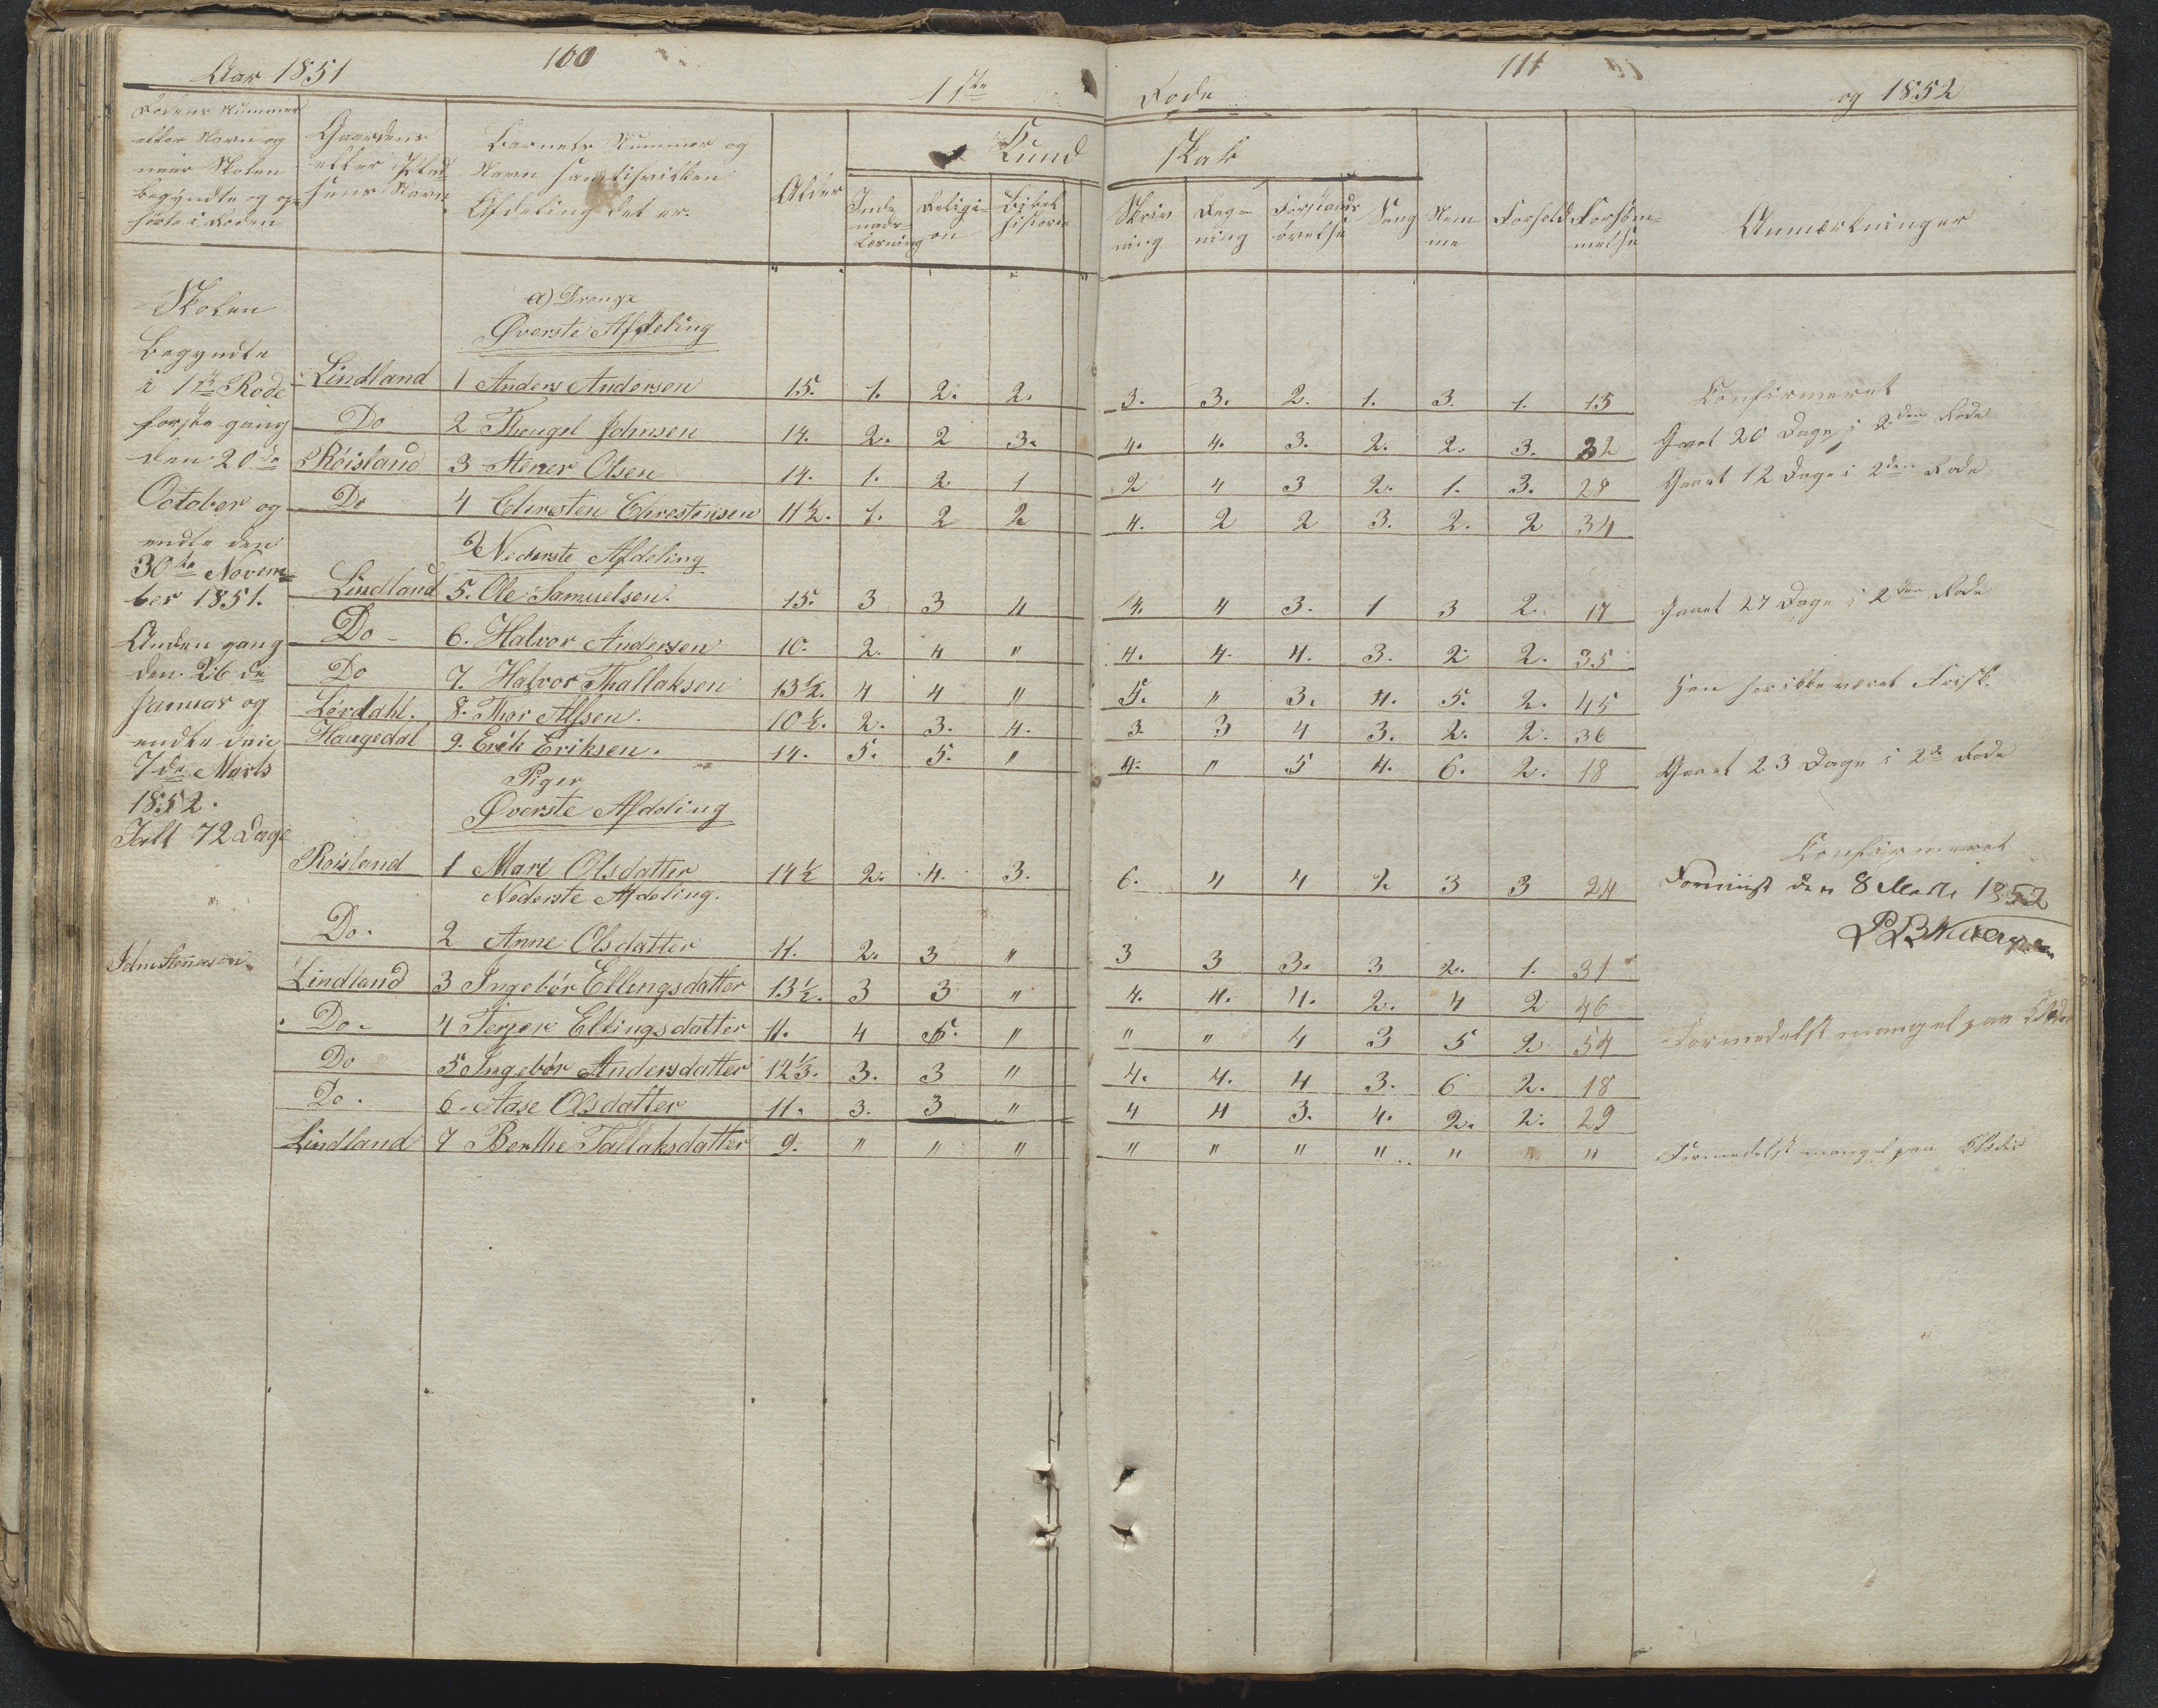 Aar 1851 100 1ste Rode 111 og 1852
Rodens Nummer eller Navn og naar Skolen begyndte og ophørte i Roden
Gaardens eller Pladsens Navn
Barnets Nummer og Navn samt i hvilken Afdeling det er.
Alder
Kundskab
Indenads Læsning
Religion
Bibelhistorie
Skrivning
Regning
Forstandsøvelse
Sang
Nemme
Forhold
Forsømmelse
Anmærkninger
Skolen
begyndte
i 1ste Rode
første gang
den 20de
October og
endte den
30te Novem=
ber 1851.
Anden gang
den 26de
Januar og
endte den
7de Marts
1852.
Ialt 72 Dage
a) Drenge
Øverste Afdeling
Lindland 1 Anders Andersen 15. 1. 2. 2. 3. 3. 2. 1. 3. 1. 13 Confirmeret
Do 2 Thengel Johnsen 14. 2. 2 3. 4. 4. 3. 2. 2. 3. 32 Gaaet 20 Dage i 2den Rode
Röisland 3 Stener Olsen 14. 1. 2 1 2 4 3 2. 1. 3. 28 Gaaet 12 Dage i 2den Rode
Do 4 Chresten Chrestensen 11½. 1. 2 2 4. 2 2 3. 2. 2 34
b) Nederste Afdeling
Lindland 5. Ole Samuelsen. 15. 3 3 4 4. 4 3. 1 3 2. 17 Gaaet 27 Dage i 2den Rode
Do 6. Halvor Andersen 10. 2. 4 " 4. 4. 4. 3. 2 2. 35
Do 7. Halvor Thallaksen 13½. 4 4 " 5. " 3. 4. 5. 2. 45 Han har ikke været Frisk.
Lördahl. 8. Thor Alfsen. 10½. 2. 3. 4. 3. 3 4 3. 2. 2. 36
Haugedal 9. Erik Eriksen. 14. 5. 5. " 4. " 5 4. 6. 2. 18 Gaaet 23 Dage i 2d Rode
Piger
Øverste Afdeling
Confirmeret
Roisland 1 Mari Olsdatter 14½ 2. 4. 3. 6. 4 4 2 3 3 24 Forevist den 8 Marts 1852
Nederste Afdeling.
Do. 2 Anne Olsdatter 11. 2. 3 " 3 3 3. 3 2. 1. 31
Lindland 3 Ingebör Ellengsdatter 13½. 3 3 " 4. 4. 4. 2. 4 2 46
Do. 4 Terjer Ellingsdatter 11. 4 5. " " " 4 3 5 2 54 Formedelst mangel paa Klæder
Do 5 Ingebör Andersdatter 12⅓. 3. 3 " 4. 4. 4 3. 6 2. 18
Do. 6. Aase Olsdatter 11. 3. 3 " 4 4 3. 4. 2. 2. 29
Lindland 7 Berthe Tallaksdatter 9. " " " " " " " " " " Formedelst mangel paa Klæder